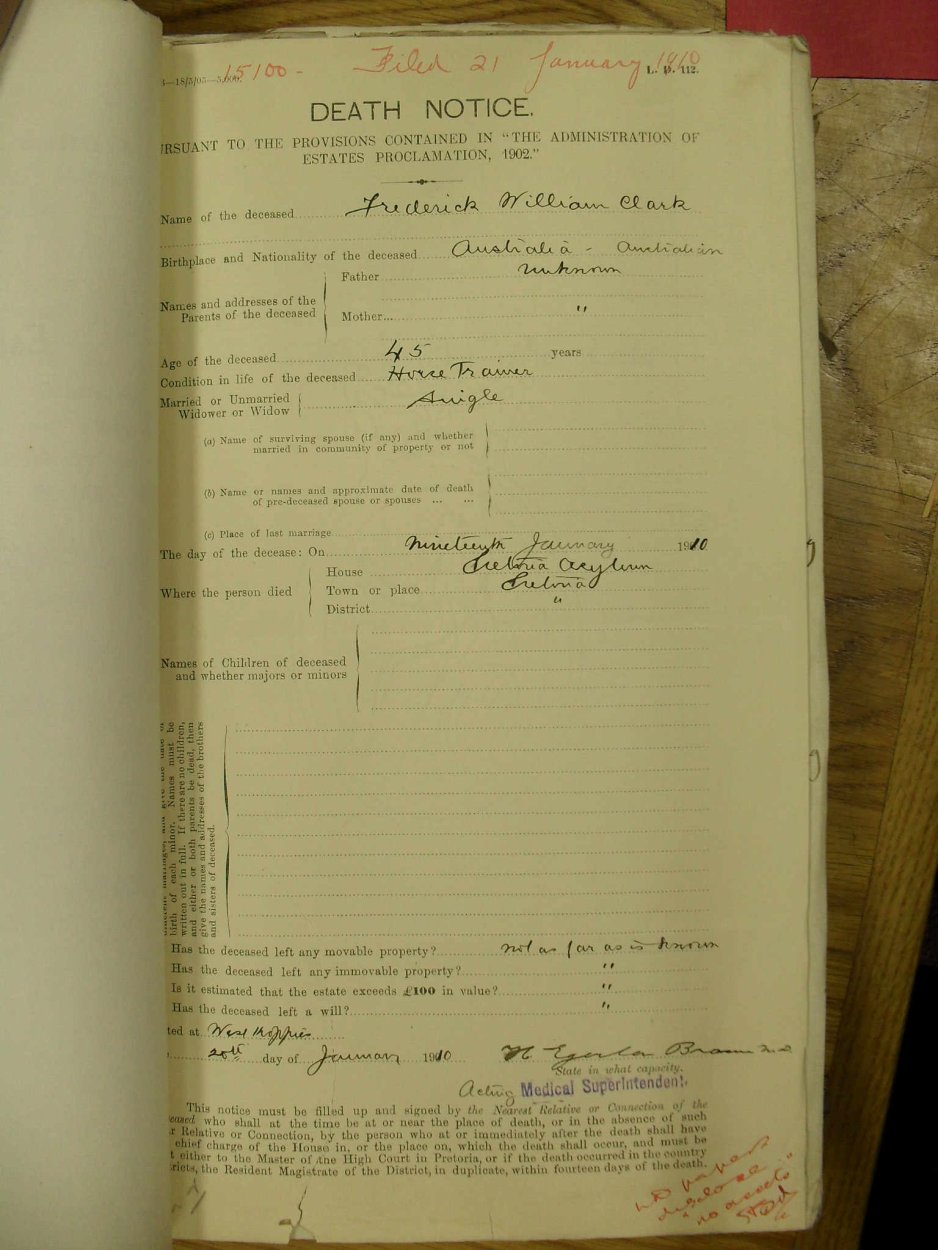 15100 - Filed 21 January 1910
—18/5/05—5,000. L. D. 112.
DEATH NOTICE.
RSUANT TO THE PROVISIONS CONTAINED IN "THE ADMINISTRATION OF
ESTATES PROCLAMATION, 1902."
Name of the deceased Frederick William Clark
Birthplace and Nationality of the deceased Australia - Australian
Names and addresses of the Parents of the deceased Father unknown
Mother "
Age of the deceased 45 years
Condition in life of the deceased Horse Trainer
Married or Unmarried Single
Widower or Widow
(a) Name of surviving spouse (if any) and whether
married in community of property or not
(b) Name or names and approximate date of death
of pre-deceased spouse or spouses ... ...
(c) Place of last marriage
The day of the decease: On nineteenth January 1910
House Pretoria Asylum
Where the person died Town or place Pretoria
District "
Names of Children of deceased
and whether majors or minors
birth of each minor. Names must be
written out in full. If there are no children,
and either or both parents be dead, then
give the names and addresses of the brothers
and sisters of deceased.
Has the deceased left any movable property? not as far as is known
Has the deceased left any immovable property? "
Is it estimated that the estate exceeds £100 in value? "
Has the deceased left a will? "
ted at West Koppies
20th day of January 1910 Brown M.D.
State in what capacity.
Acting Medical Superintendent.
This notice must be filled up and signed by the Nearest Relative or Connection of the
eased who shall at the time be at or near the place of death, or in the absence of such
r Relative or Connection, by the person who at or immediately after the death shall have
chief charge of the House in, or the place on, which the death shall occur, and must be
t either to the Master of the High Court in Pretoria, or if the death occurred in the country
ricts, the Resident Magistrate of the District, in duplicate, within fourteen days of the death.
papers
disclose
"no assets"